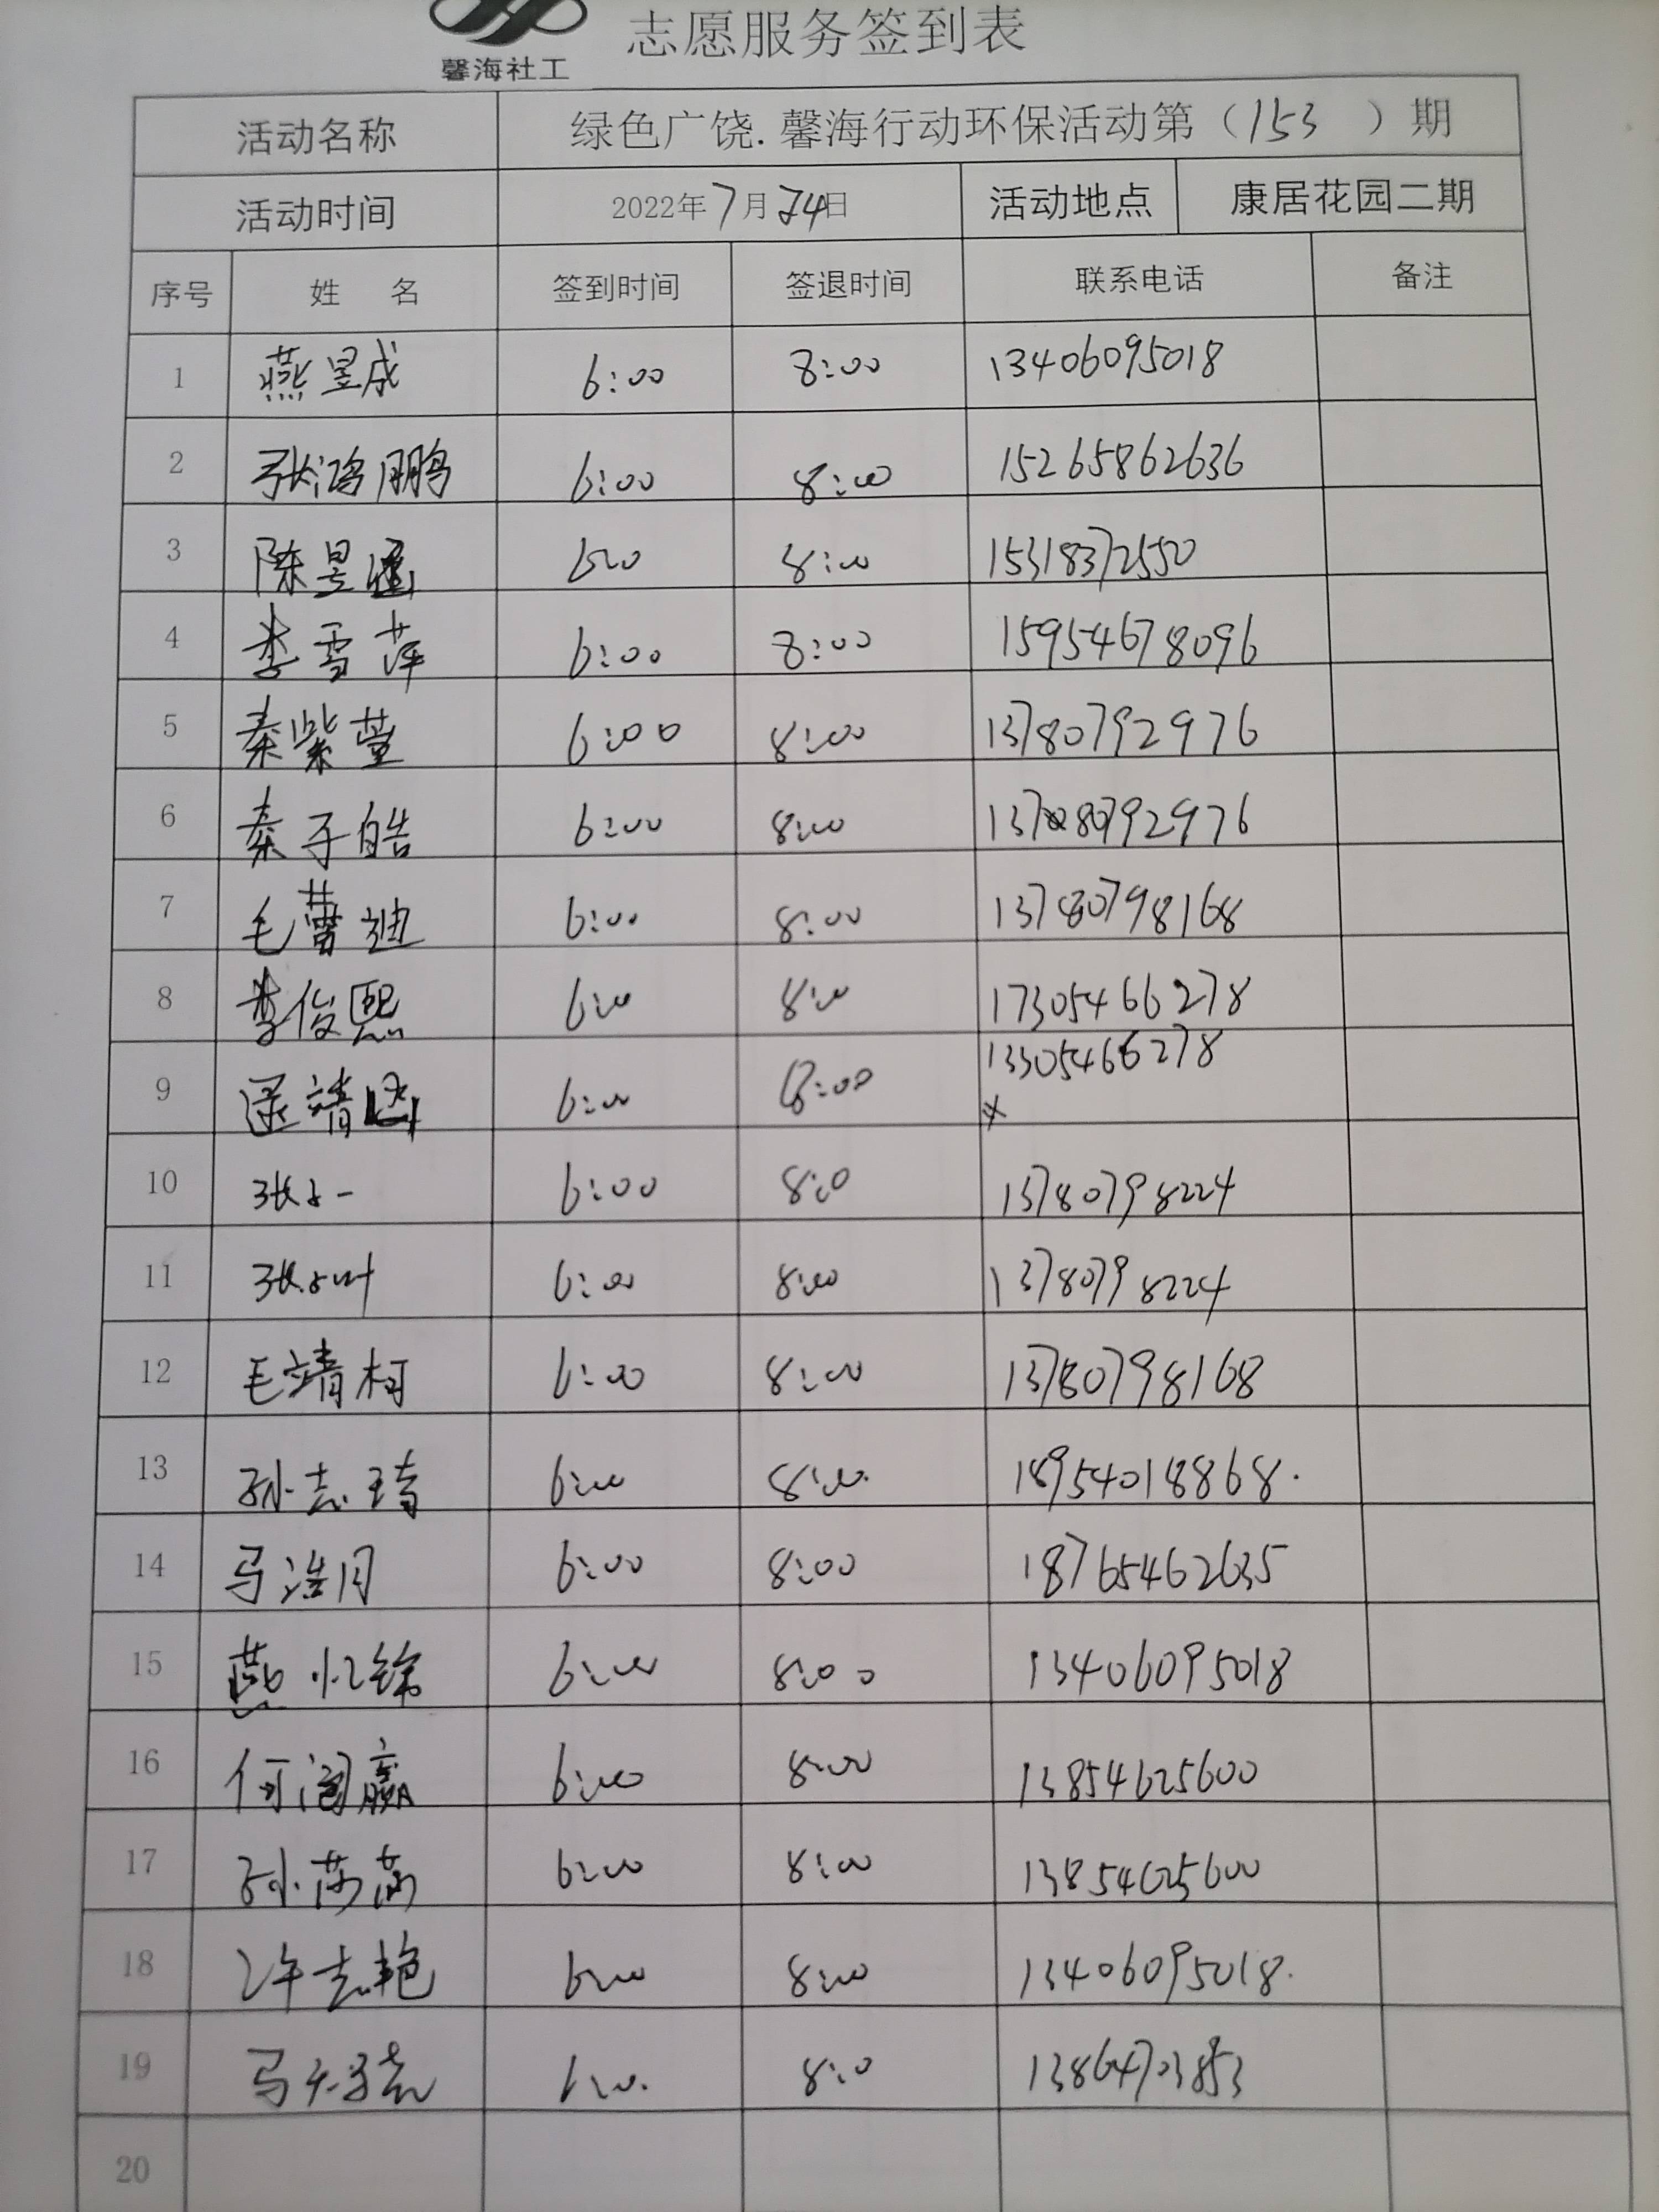 馨海社工
志愿服务签到表
活动名称 绿色广饶.馨海行动环保活动第（153）期
活动时间 2022年7月24日 活动地点 康居花园二期
序号 姓 名 签到时间 签退时间 联系电话 备注
1 燕昱成 6:00 8:00 13406095018
2 张鸿鹏 6:00 8:00 15265862636
3 陈昱涵 6:00 8:00 15318372550
4 李雪萍 6:00 8:00 15954678096
5 秦紫萱 6:00 8:00 13780792976
6 秦子皓 6:00 8:00 13780792976
7 毛蕾迪 6:00 8:00 13780798168
8 李俊熙 6:00 8:00 17305466278
9 6:00 8:00 13305466278
10 6:00 8:00 13780798224
11 6:00 8:00 13780798224
12 毛靖柯 6:00 8:00 13780798168
13 孙志琦 6:00 8:00 18954018868.
14 马浩月 6:00 8:00 18765462635
15 燕忆锦 6:00 8:00 13406095018
16 6:00 8:00 13854625600
17 6:00 8:00 13854625600
18 许志艳 6:00 8:00 13406095018.
19 6:00 8:00 13864703853
20